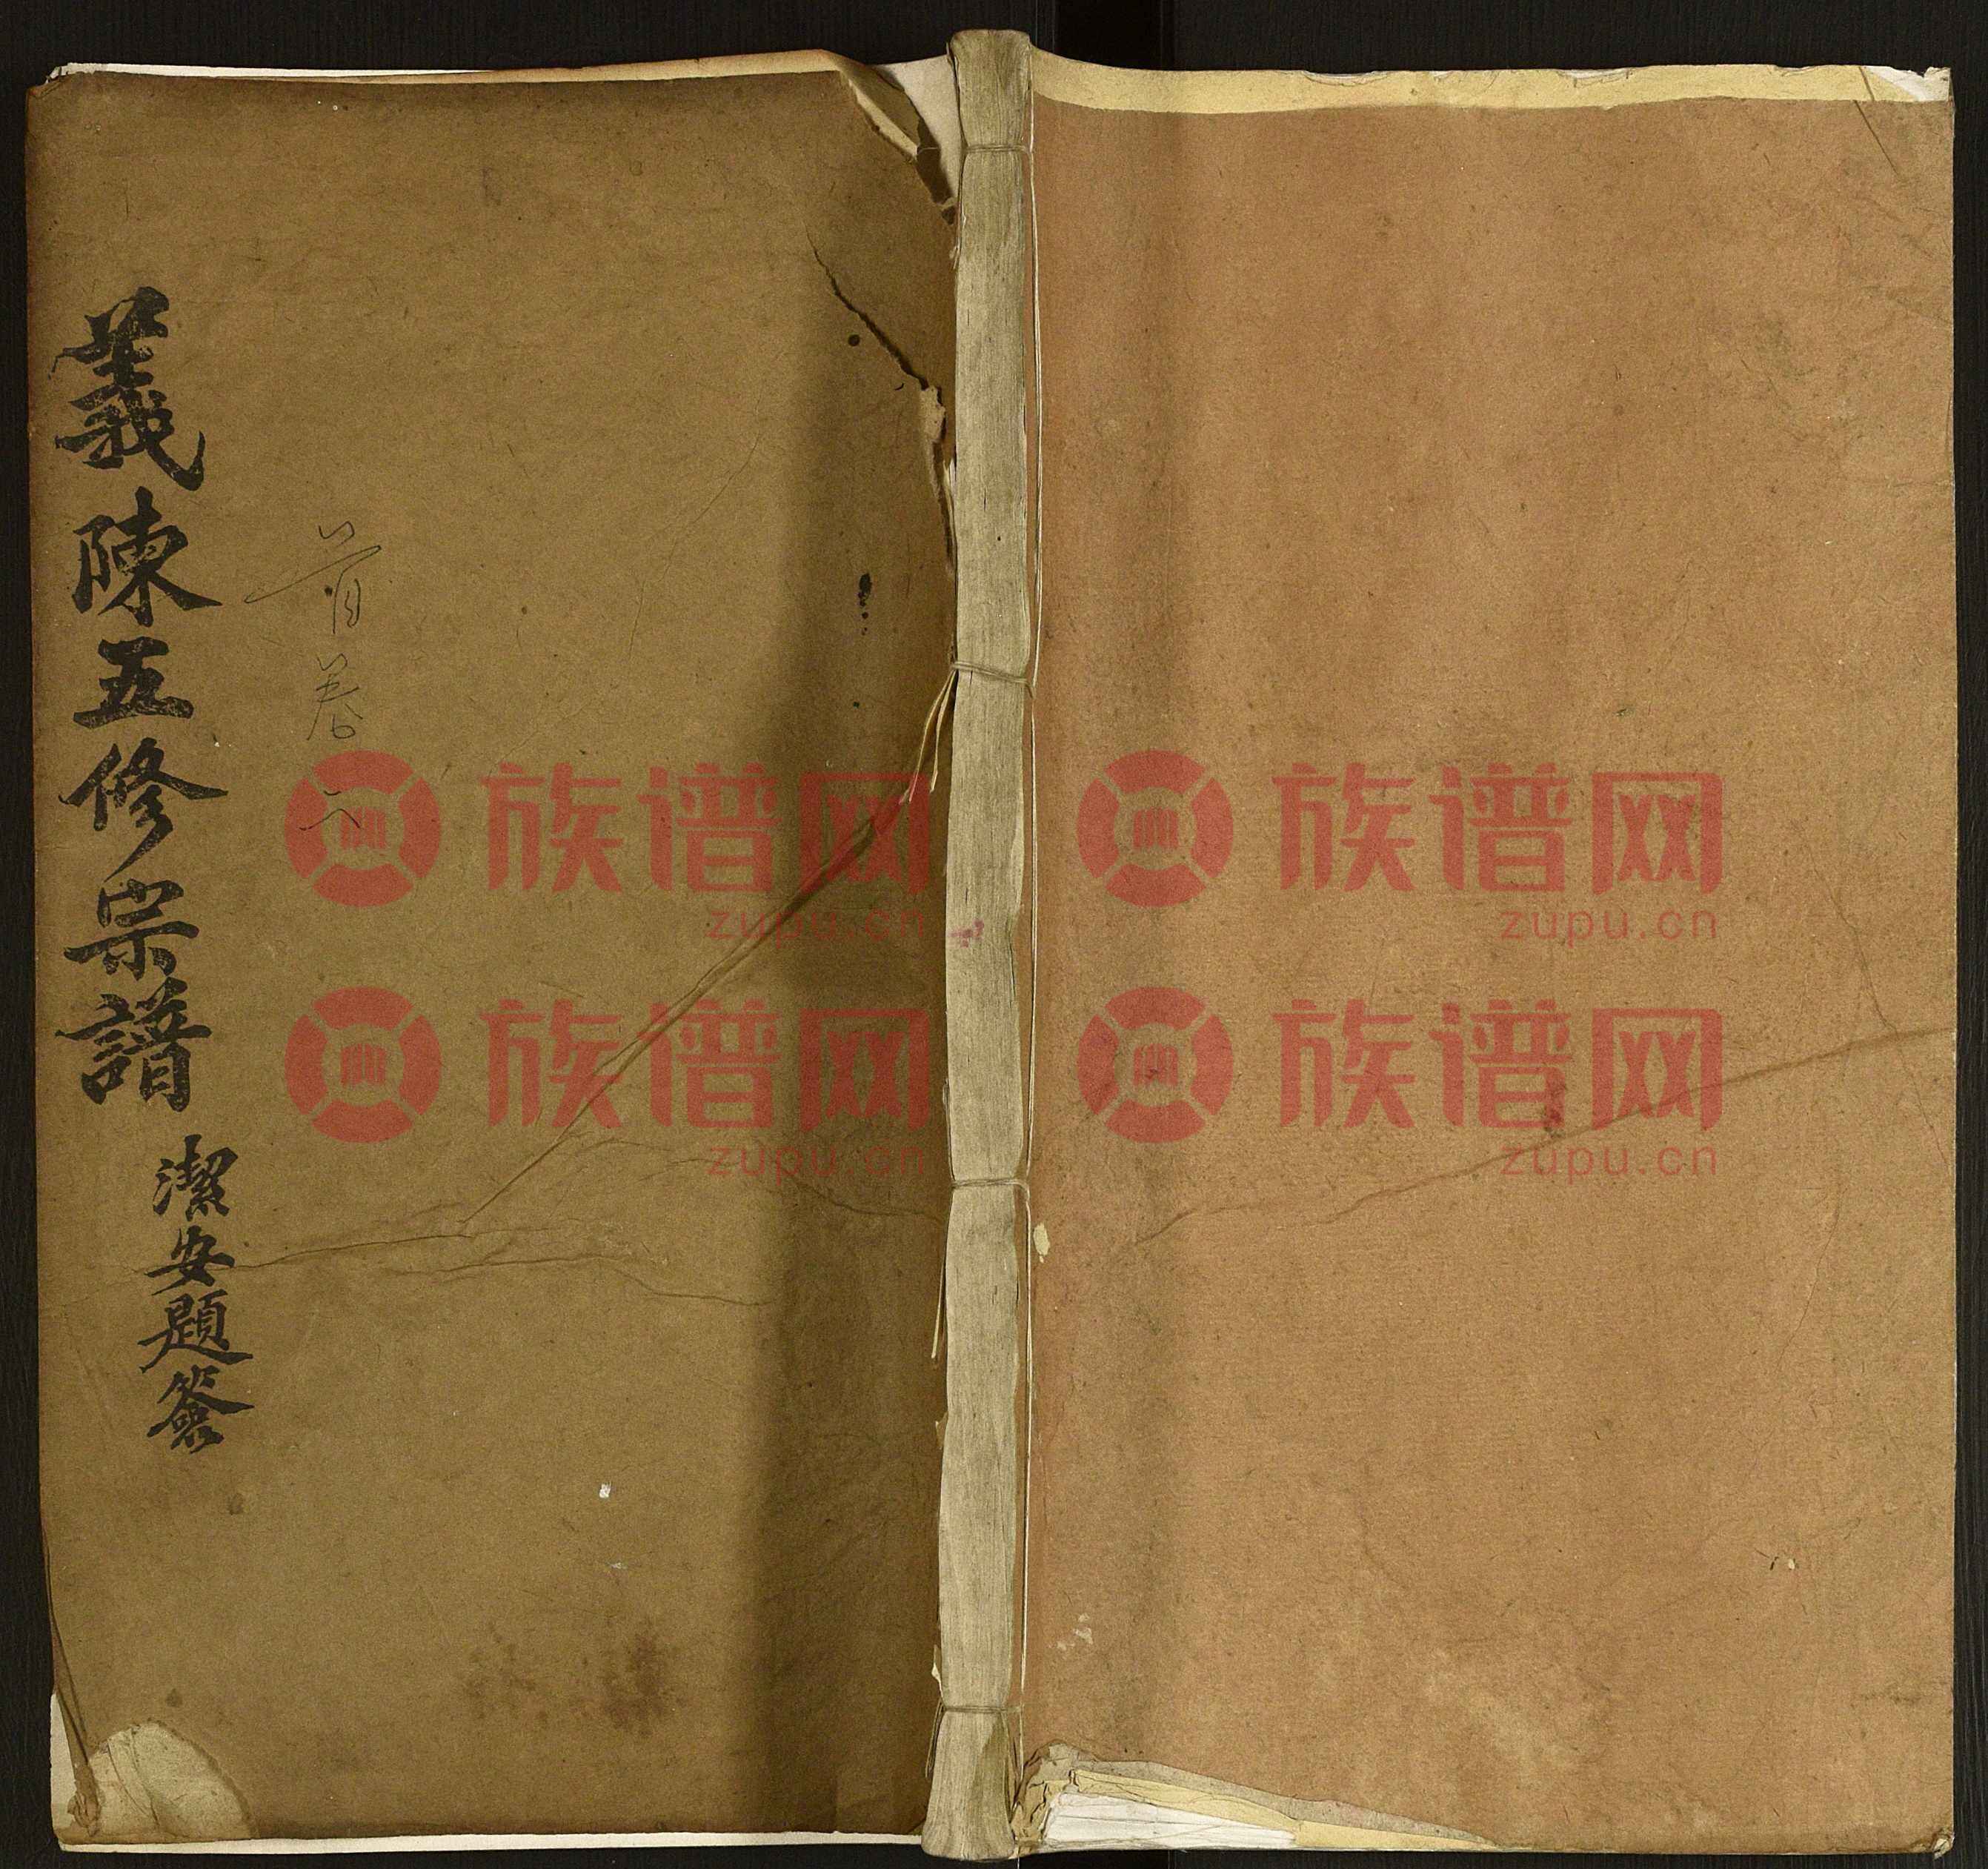 義陳五修宗譜
潔安題簽
首卷
二
族谱网
zupu.cn
族谱网
zupu.cn
族谱网
zupu.cn
族谱网
zupu.cn